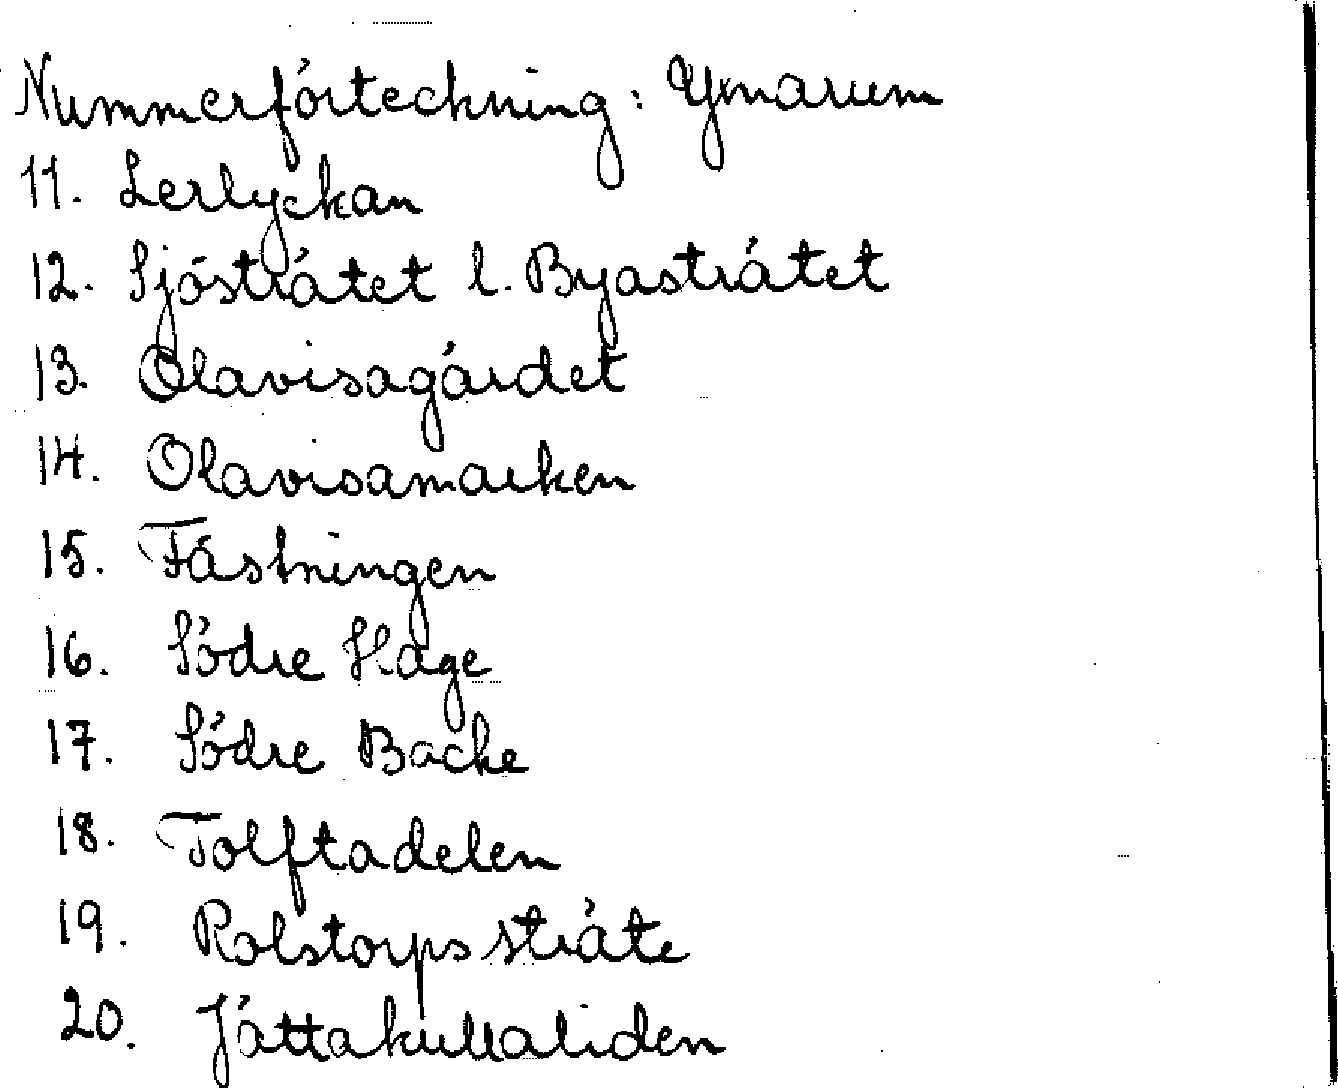 Nummerförteckning: Yxnarum
11. Lerlyckan
12. Sjösträtet l. Byasträtet
13. Olavisagärdet
14. Olavisamarken
15. Fästningen
16. Södre Hage
17. Södre Backe
18. Tolftadelen
19. Rolstorps sträte
20. Jättakullaliden